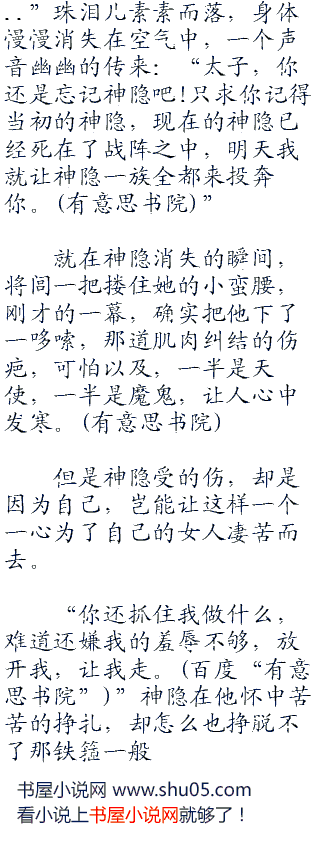 ..”珠泪儿素素而落，身体
慢慢消失在空气中，一个声
音幽幽的传来：“太子，你
还是忘记神隐吧!只求你记得
当初的神隐，现在的神隐已
经死在了战阵之中，明天我
就让神隐一族全都来投奔
你。(有意思书院)”
就在神隐消失的瞬间，
将闾一把搂住她的小蛮腰，
刚才的一幕，确实把他下了
一哆嗦，那道肌肉纠结的伤
疤，可怕以及，一半是天
使，一半是魔鬼，让人心中
发寒。(有意思书院)
但是神隐受的伤，却是
因为自己，岂能让这样一个
一心为了自己的女人凄苦而
去。
“你还抓住我做什么，
难道还嫌我的羞辱不够，放
开我，让我走。(百度“有意
思书院”)”神隐在他怀中苦
苦的挣扎，却怎么也挣脱不
了那铁箍一般
书屋小说网 www.shu05.com
看小说上书屋小说网就够了！